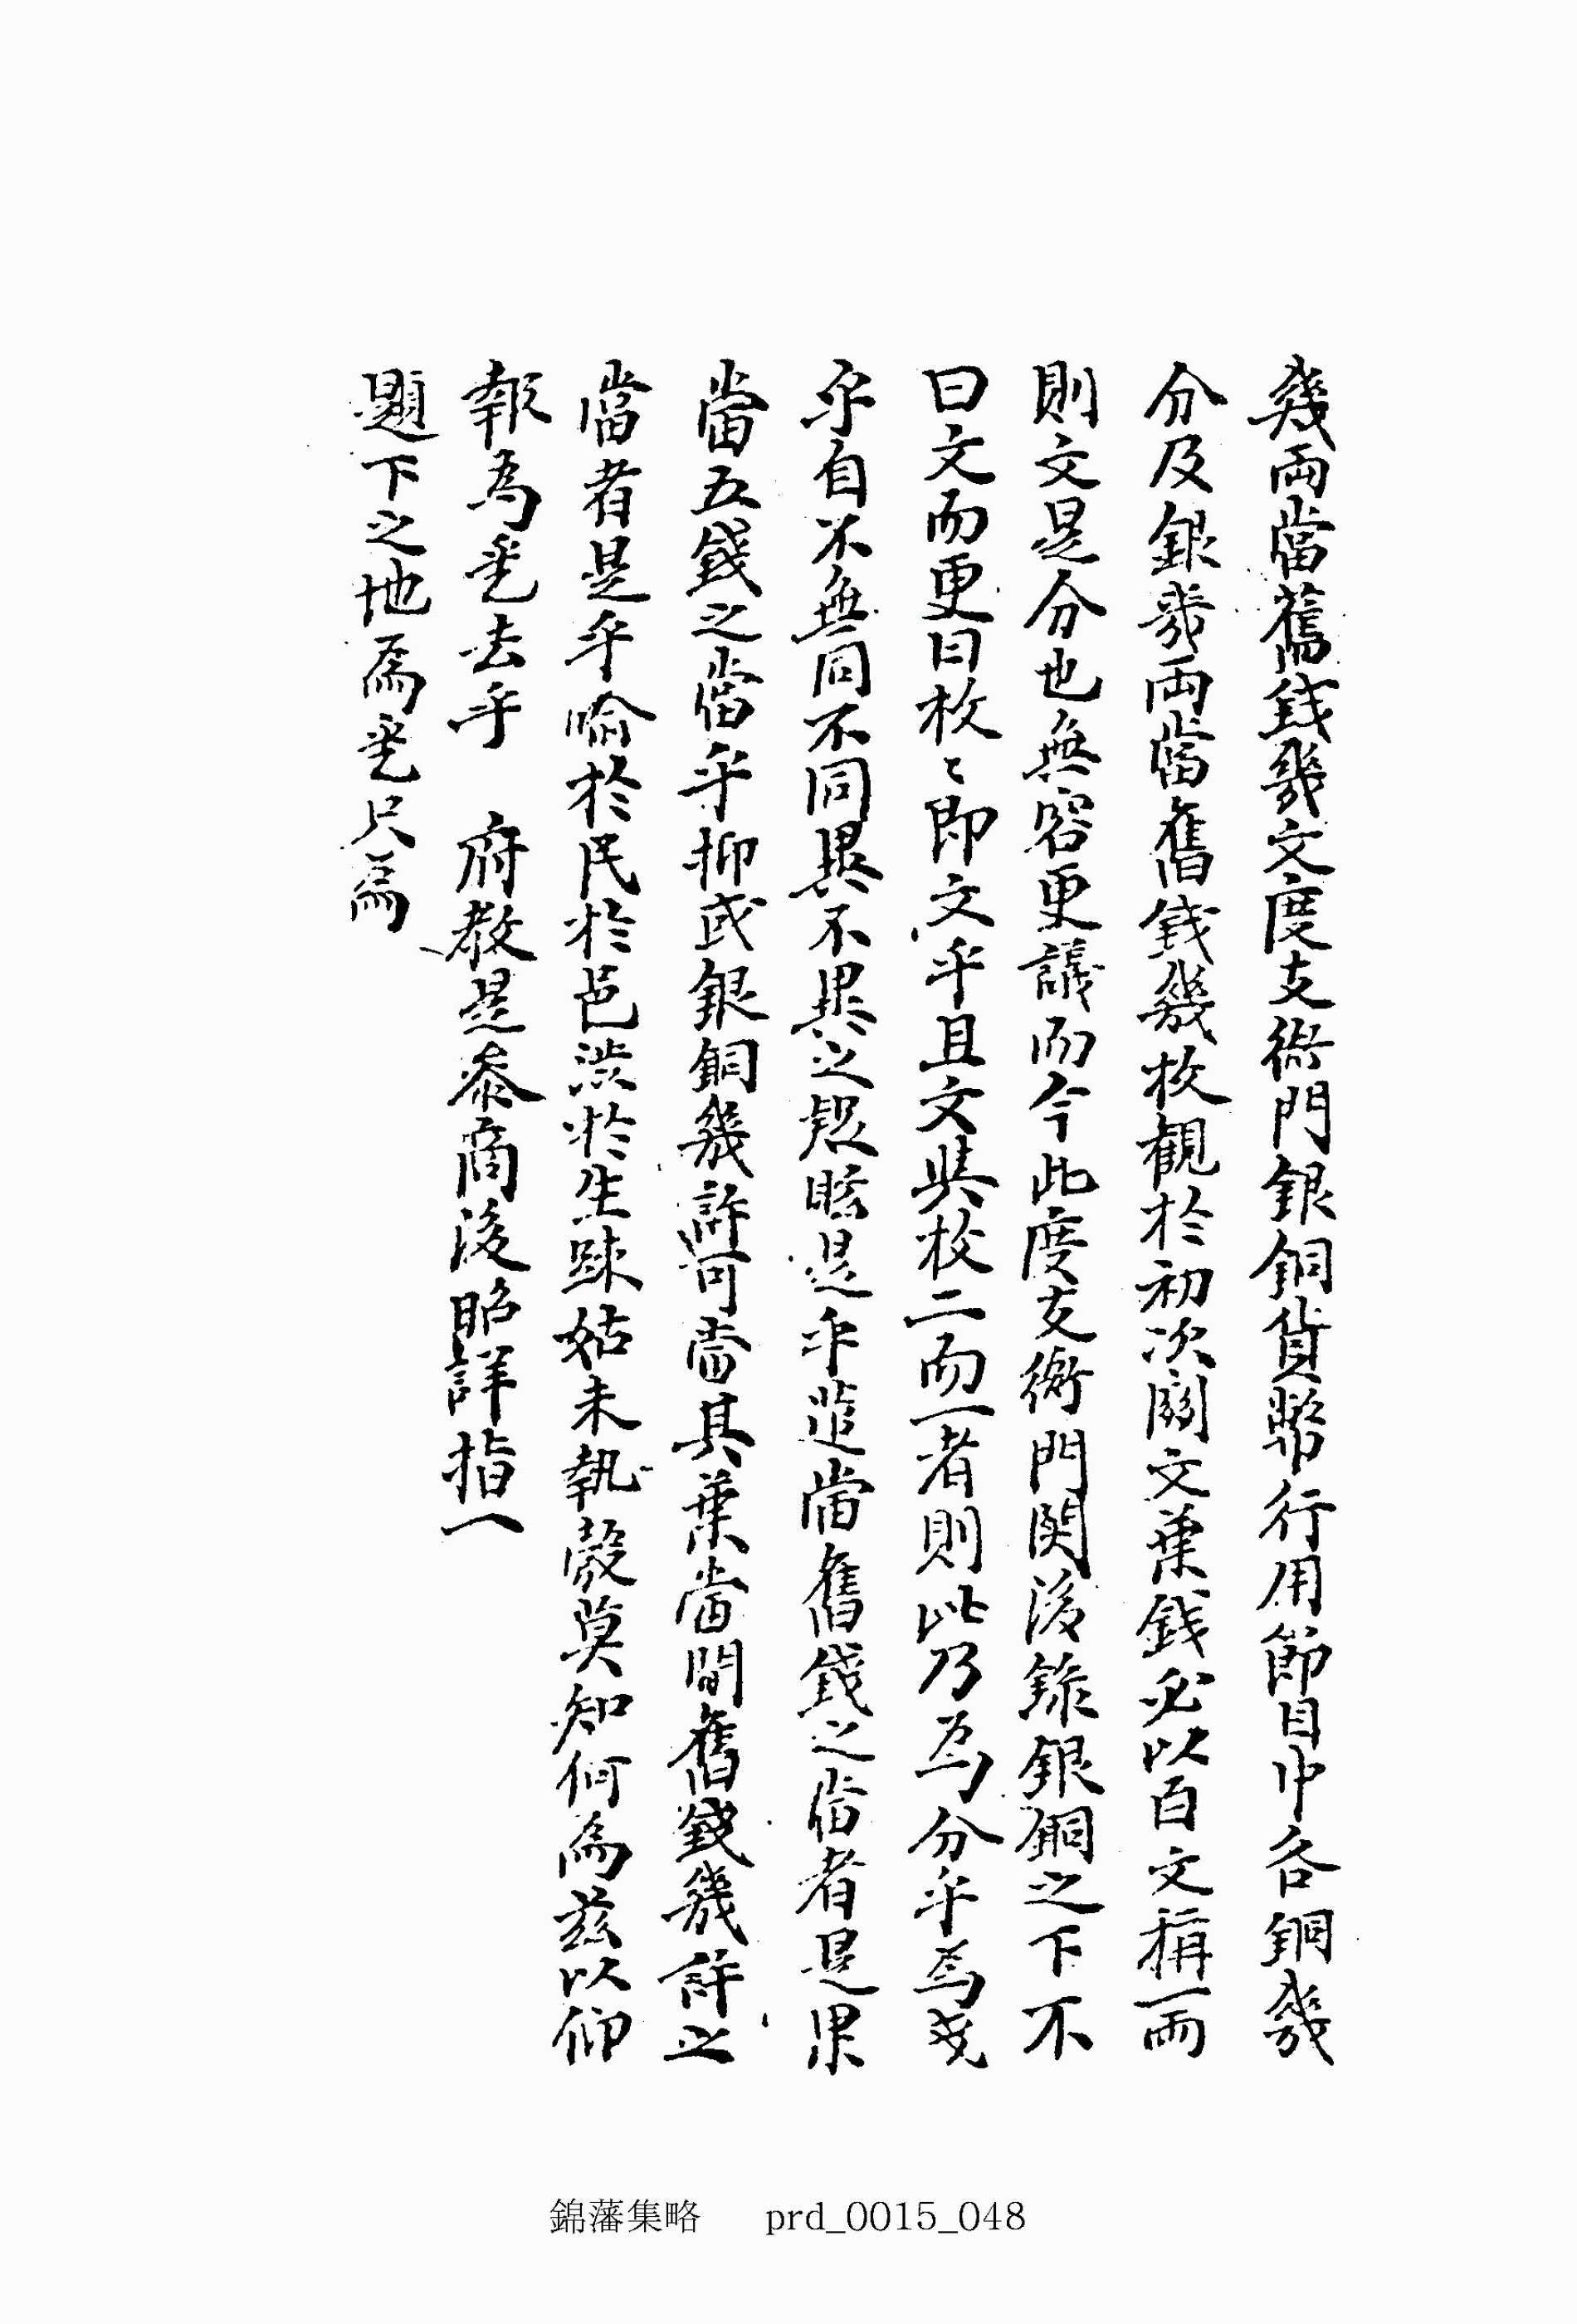 幾兩當舊錢幾文度支衙門銀銅貨幣行用節目中各銅幾
分及銀幾兩當舊錢幾枚觀於初次關文葉錢必以百文稱一兩
則文是分也無容更議而今此度支衙門関後錄銀銅之下不
曰文而更曰枚〻即文乎且文與枚二而一者則此乃爲分乎爲戔
乎自不無同不同異不異之疑眩是乎㫆當舊錢之當者是果
當五錢之當乎抑或銀銅幾許可當其葉當間舊錢幾許之
當者是乎喻於民於邑澁於生踈姑未執殼莫知何爲茲以仰
報爲乎去乎 府教是叅商後昭詳指一
題下之地爲乎只爲
錦藩集略 prd_0015_048